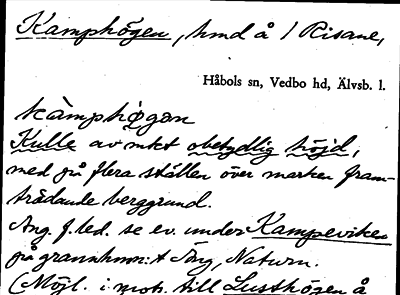 Kamphögen, hmd å 1 Risane,
Håbols sn, Vedbo hd, Älvsb. l.
kàmphø̀gən
Kulle av mkt obetydlig höjd,
med på flera ställen över marken fram-
trädande berggrund.
Ang. f. led. se ev. under Kampeviken
på grannhmn: t Ting, Naturn.
(Möjl. i mots. till Lusthögen å